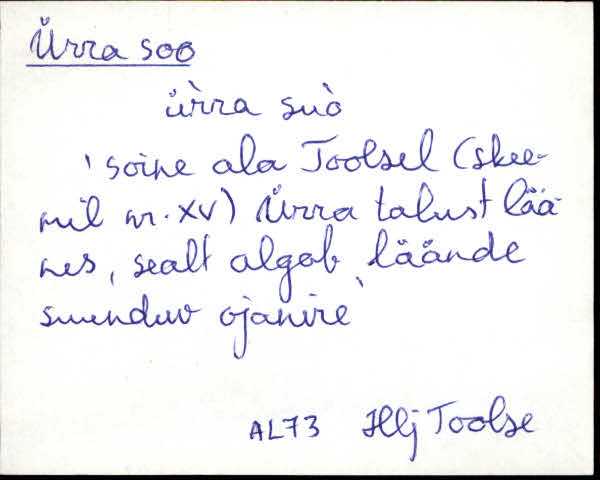 Ürra soo
ürra suò
'soine ala Toolsel (skee-
mil nr. XV) Ürra talust lää-
nes, sealt algab läände
suunduv ojanire'
AL73 Hlj Toolse